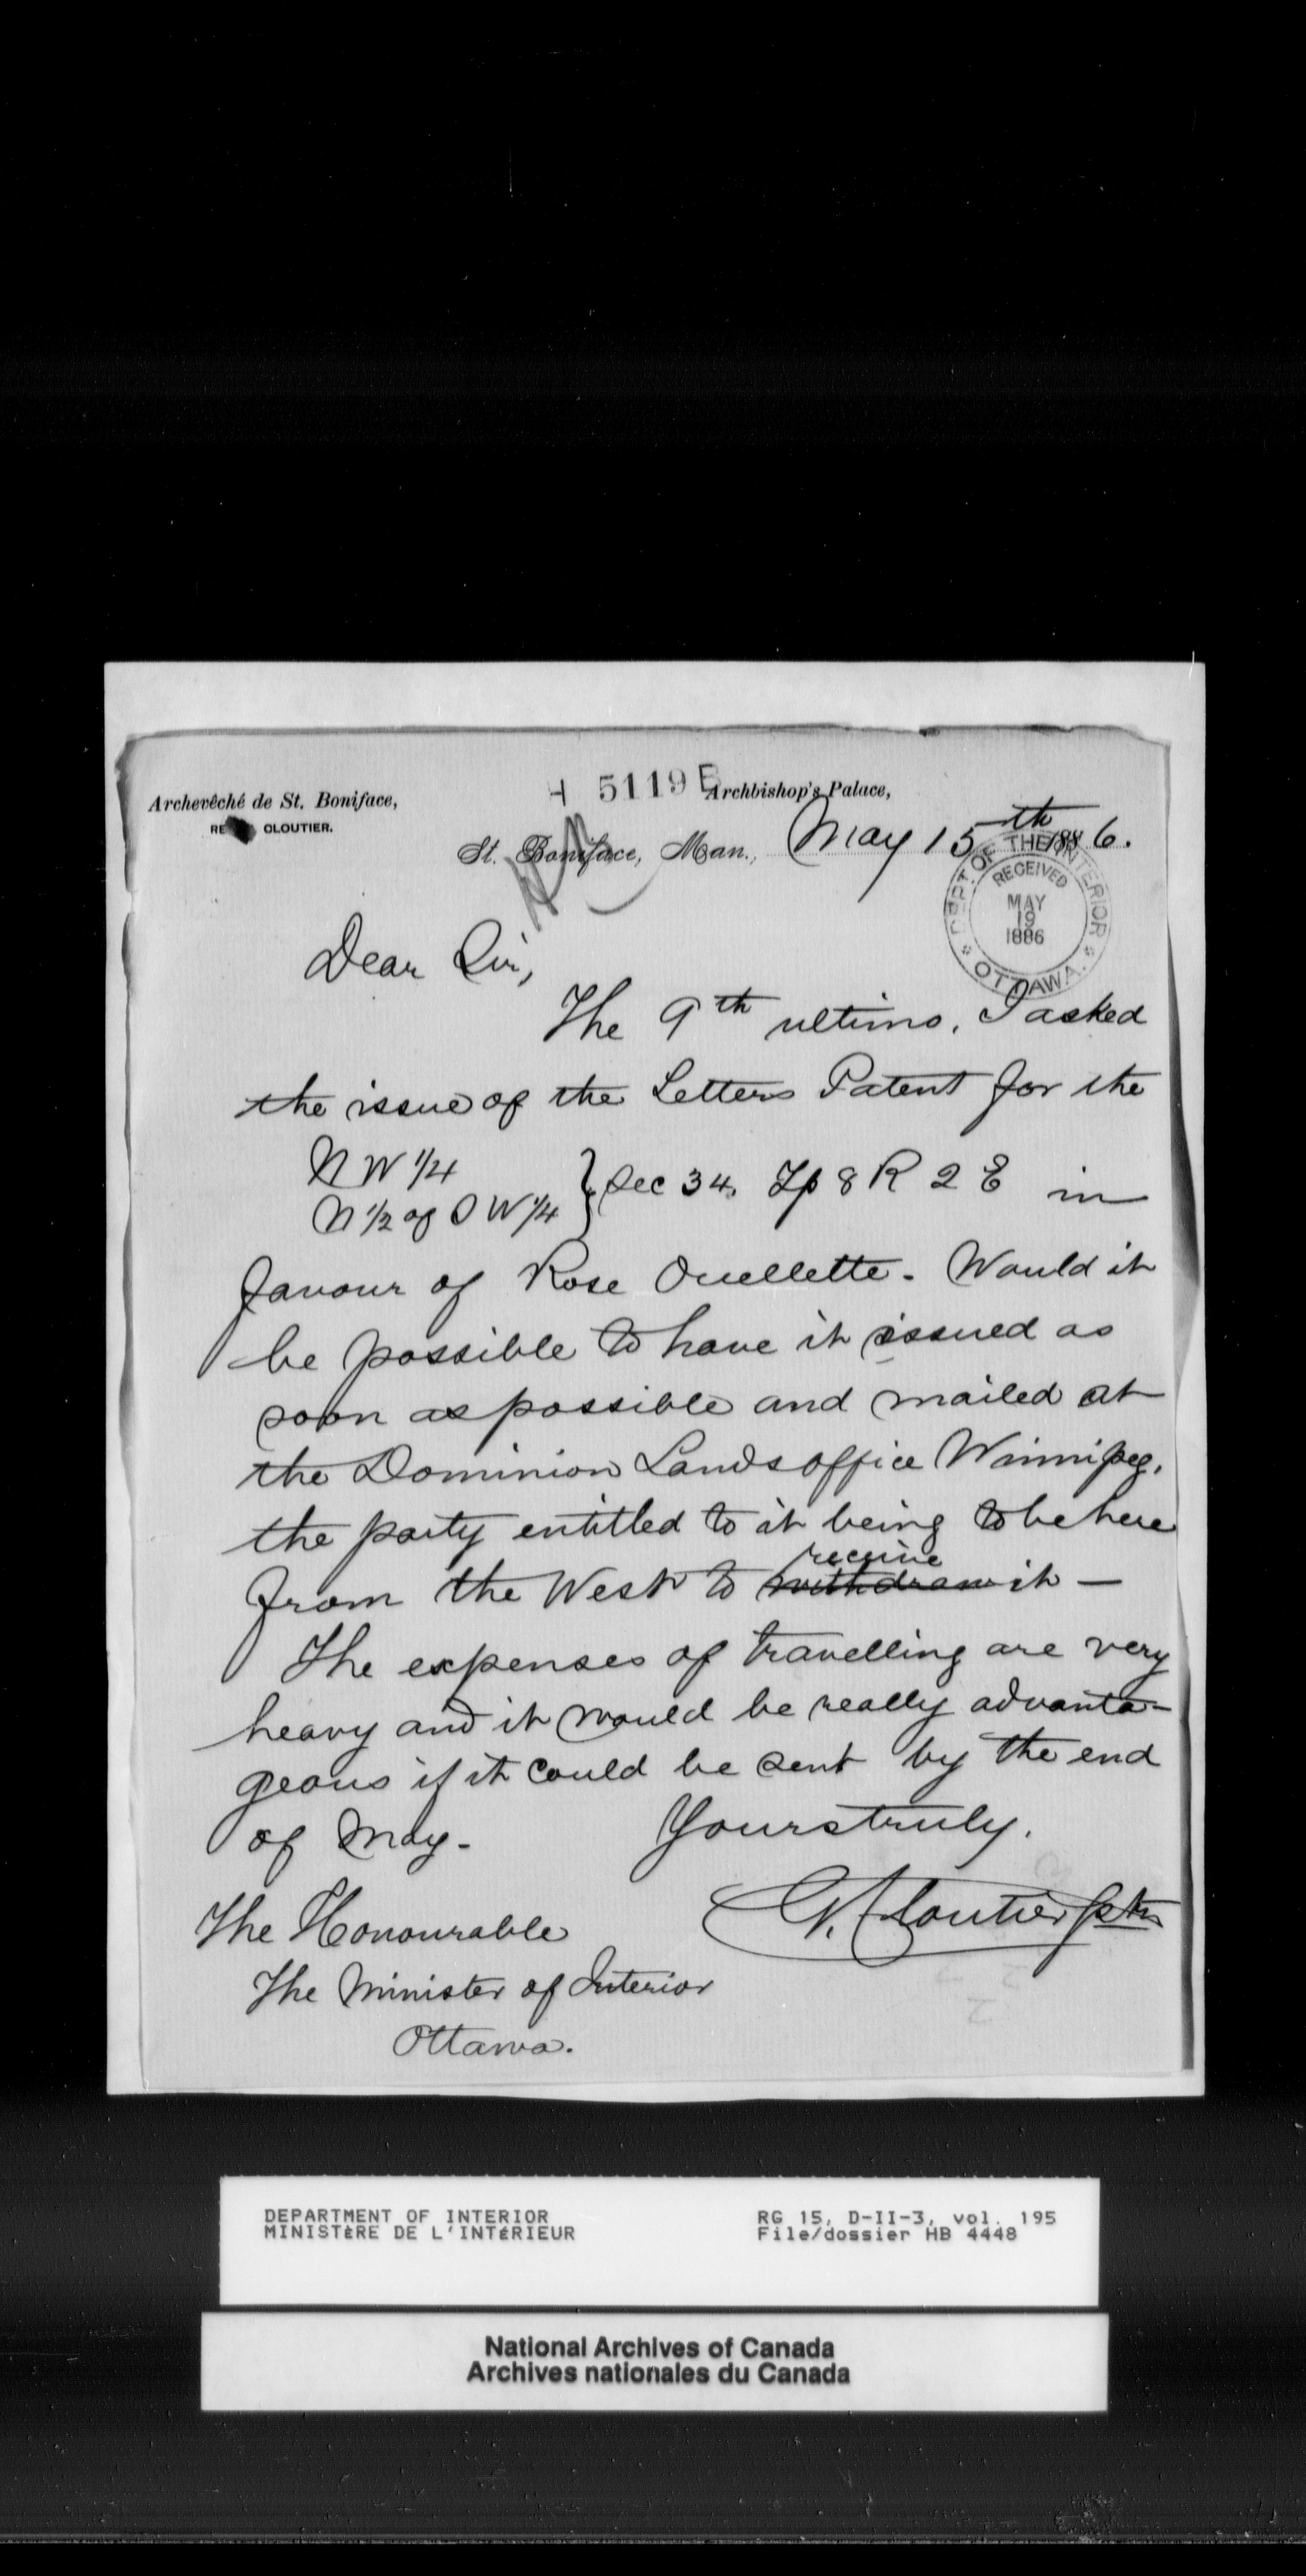 Archevêché de St. Boniface,
H 5119 B
Archbishop's Palace,
CLOUTIER.
St. Boniface, Man., May 15th 1886.
DEPT. OF THE INTERIOR
RECEIVED
MAY
19
1886
OTTAWA.
Dear Sir,
The 9th ultimo, I asked
the issue of the Letters Patent for the
N W 1/4
N 1/2 of S W 1/4 } Sec 34. Tp 8 R 2 E in
favour of Rose Ouellette. Would it
be possible to have it issued as
soon as possible and mailed at
the Dominion Lands office Winnipeg,
the party entitled to it being to be here
receive
from the West to withdraw it —
The expenses of travelling are very
heavy and it would be really advanta-
geous if it could be sent by the end
of May.
Yours truly.
G. Cloutier ptr
The Honourable
The Minister of Interior
Ottawa.
DEPARTMENT OF INTERIOR
MINISTÈRE DE L'INTÉRIEUR
RG 15, D-II-3, vol. 195
File/dossier HB 4448
National Archives of Canada
Archives nationales du Canada